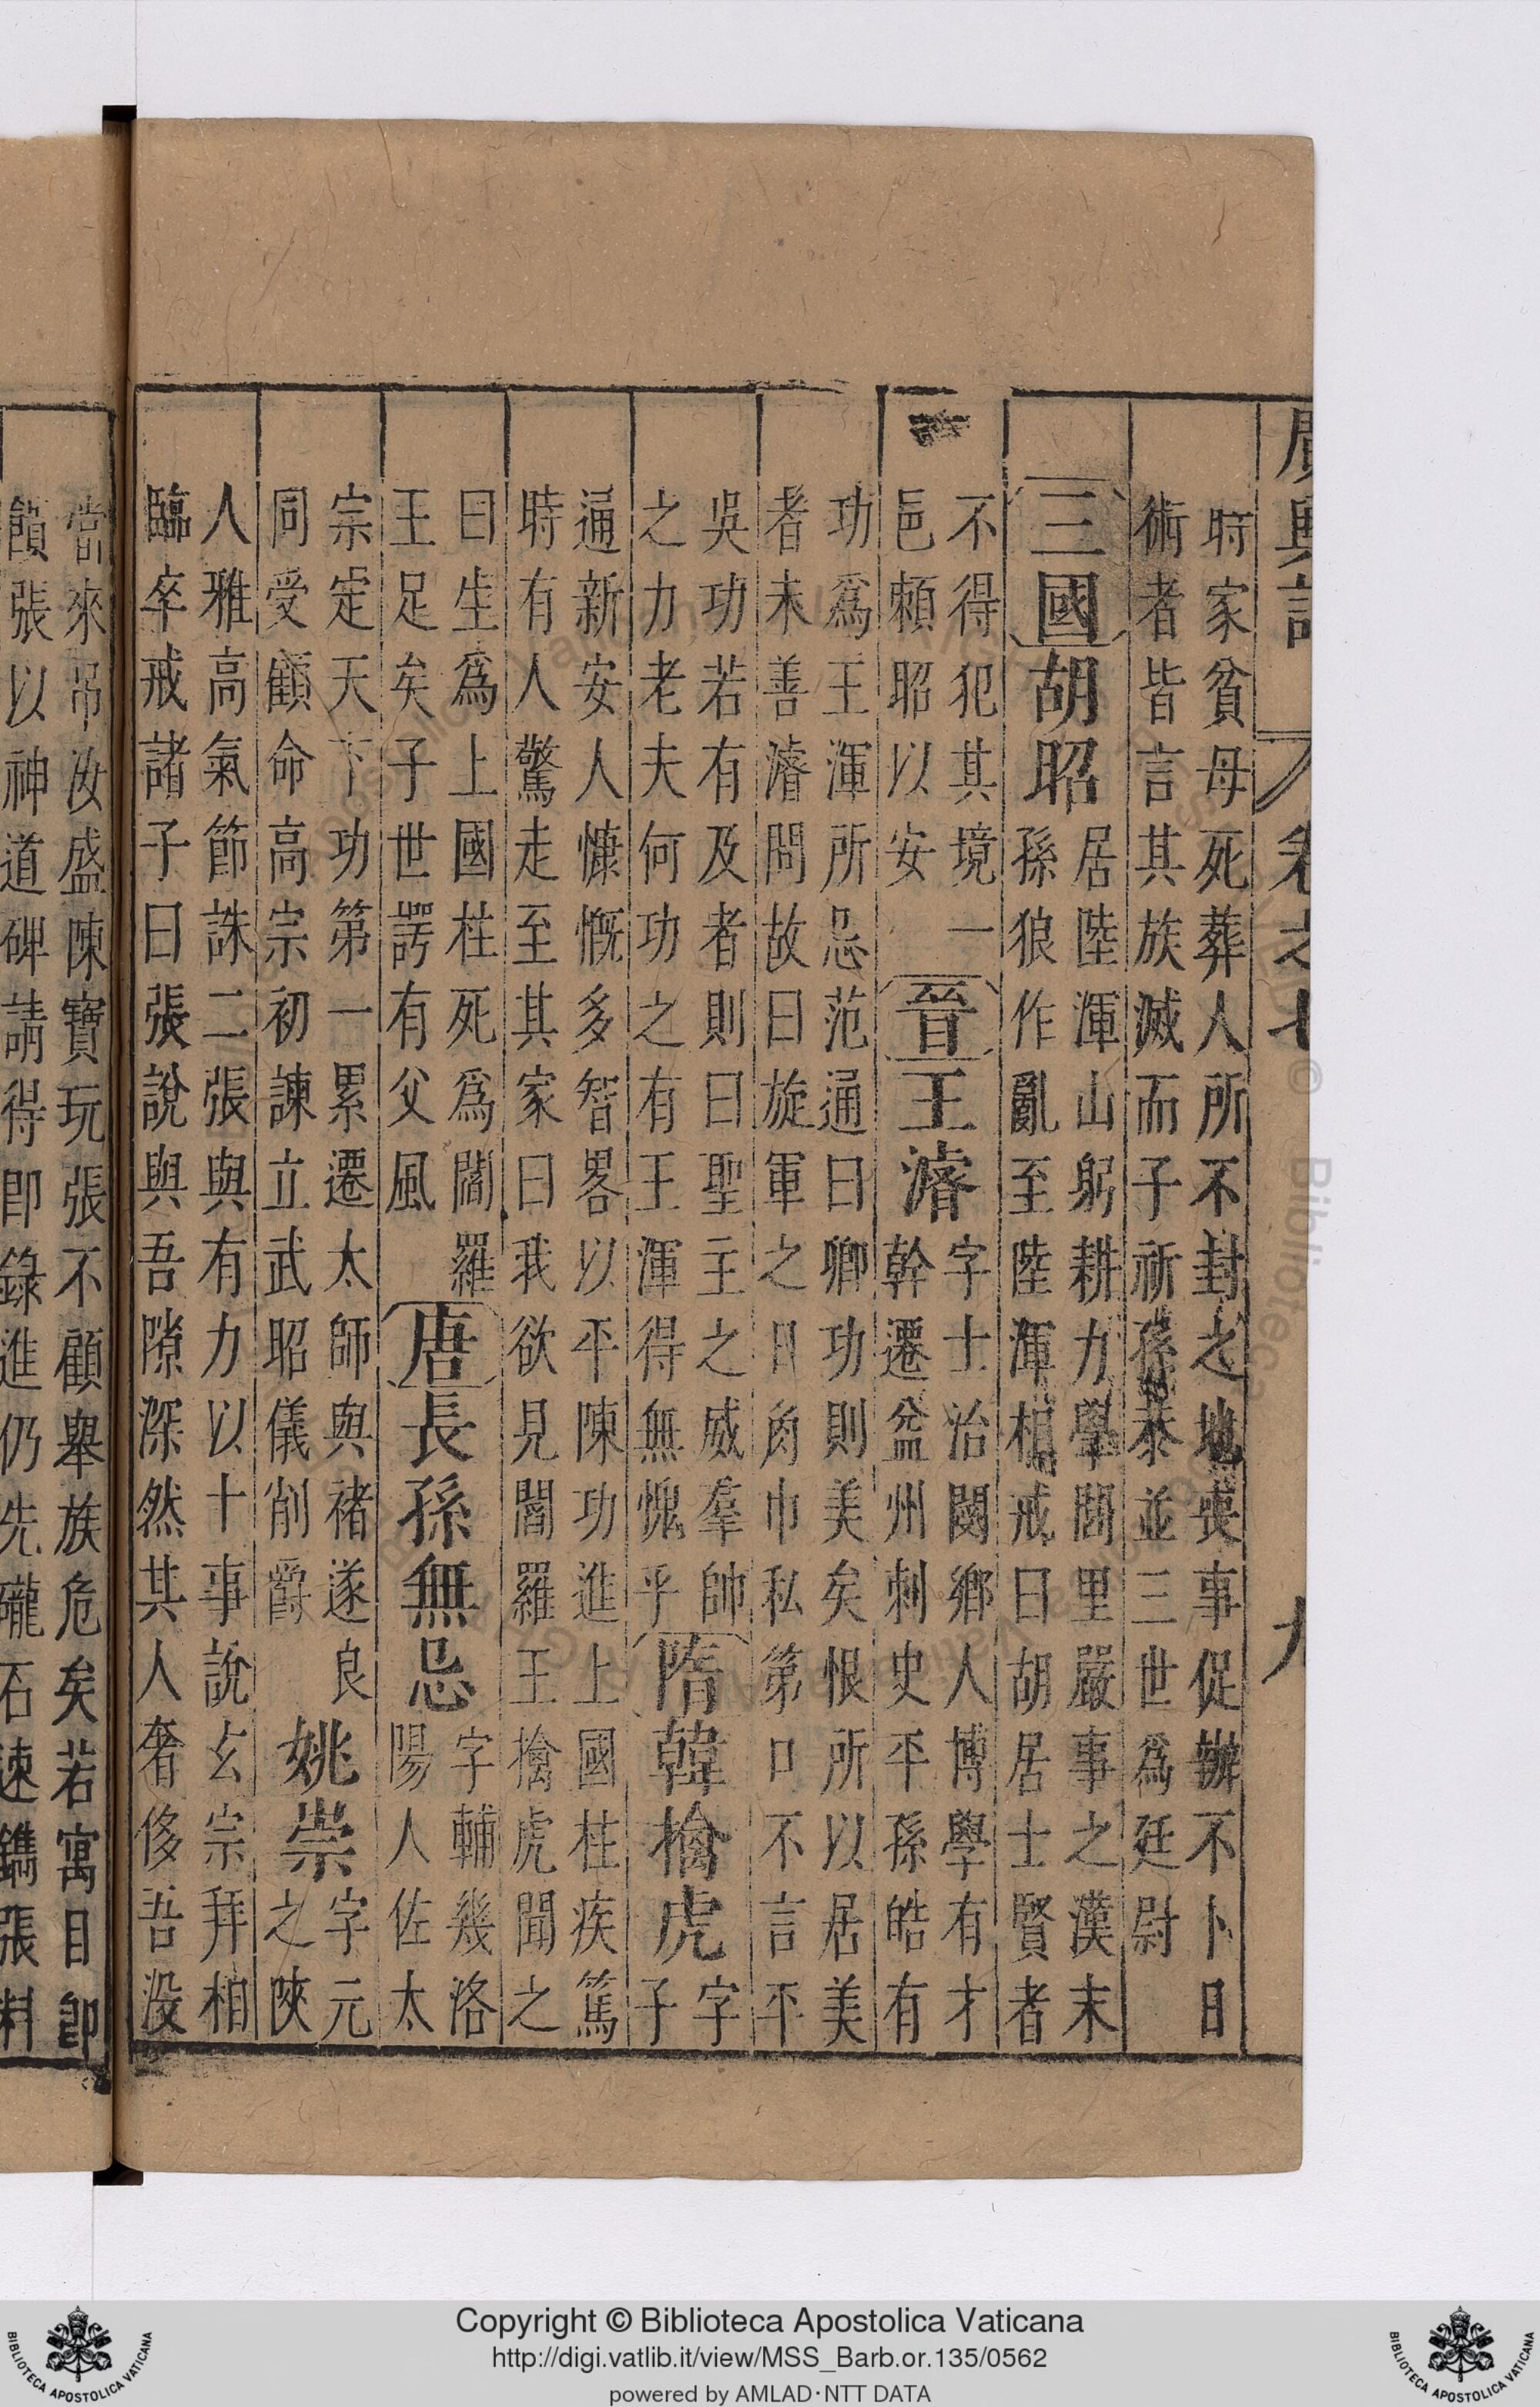 廣輿記 卷之七 九
時家貧母死葬人所不封之地喪事促辦不卜日
術者皆言其族滅而子祈孫恭並三世爲廷尉
三國 胡昭
居陸渾山躬耕力學閭里嚴事之漢末
孫狼作亂至陸渾相戒曰胡居士賢者
不得犯其境一
邑頼昭以安
晉 王濬
字士治閿鄉人博學有才
幹遷益州刺史平孫皓有
功爲王渾所忌范通曰卿功則美矣恨所以居美
者未善濬問故曰旋軍之日角巾私第口不言平
吳功若有及者則曰聖主之威羣帥
之力老夫何功之有王渾得無愧乎
隋 韓擒虎
字
子
通新安人慷慨多智畧以平陳功進上國柱疾篤
時有人驚走至其家曰我欲見閻羅王擒虎聞之
曰生爲上國柱死爲閻羅
王足矣子世諤有父風
唐 長孫無忌
字輔幾洛
陽人佐太
宗定天下功第一累遷太師與褚遂良
同受顧命高宗初諫立武昭儀削爵
姚崇
字元
之陝
人雅高氣節誅二張與有力以十事說玄宗拜相
臨卒戒諸子曰張說與吾隙深然其人奢侈吾没
當來吊汝盛陳寶玩張不顧舉族危矣若寓目卽
饋張以神道碑請得卽錄進仍先礲石速鐫張料
Copyright © Biblioteca Apostolica Vaticana
http://digi.vatlib.it/view/MSS_Barb.or.135/0562
powered by AMLAD·NTT DATA
BIBLIOTECA APOSTOLICA VATICANA
BIBLIOTECA APOSTOLICA VATICANA